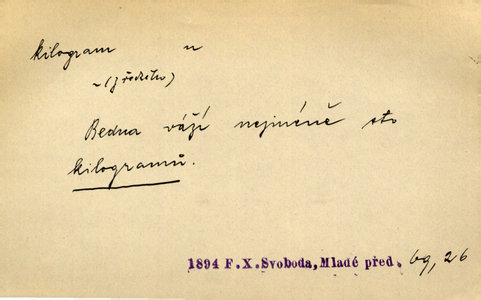 kilogram     n
~ (z řeckého)
Bedna váží nejméně sto
kilogramů.
1894 F.X.Svoboda, Mladé před. 69, 26